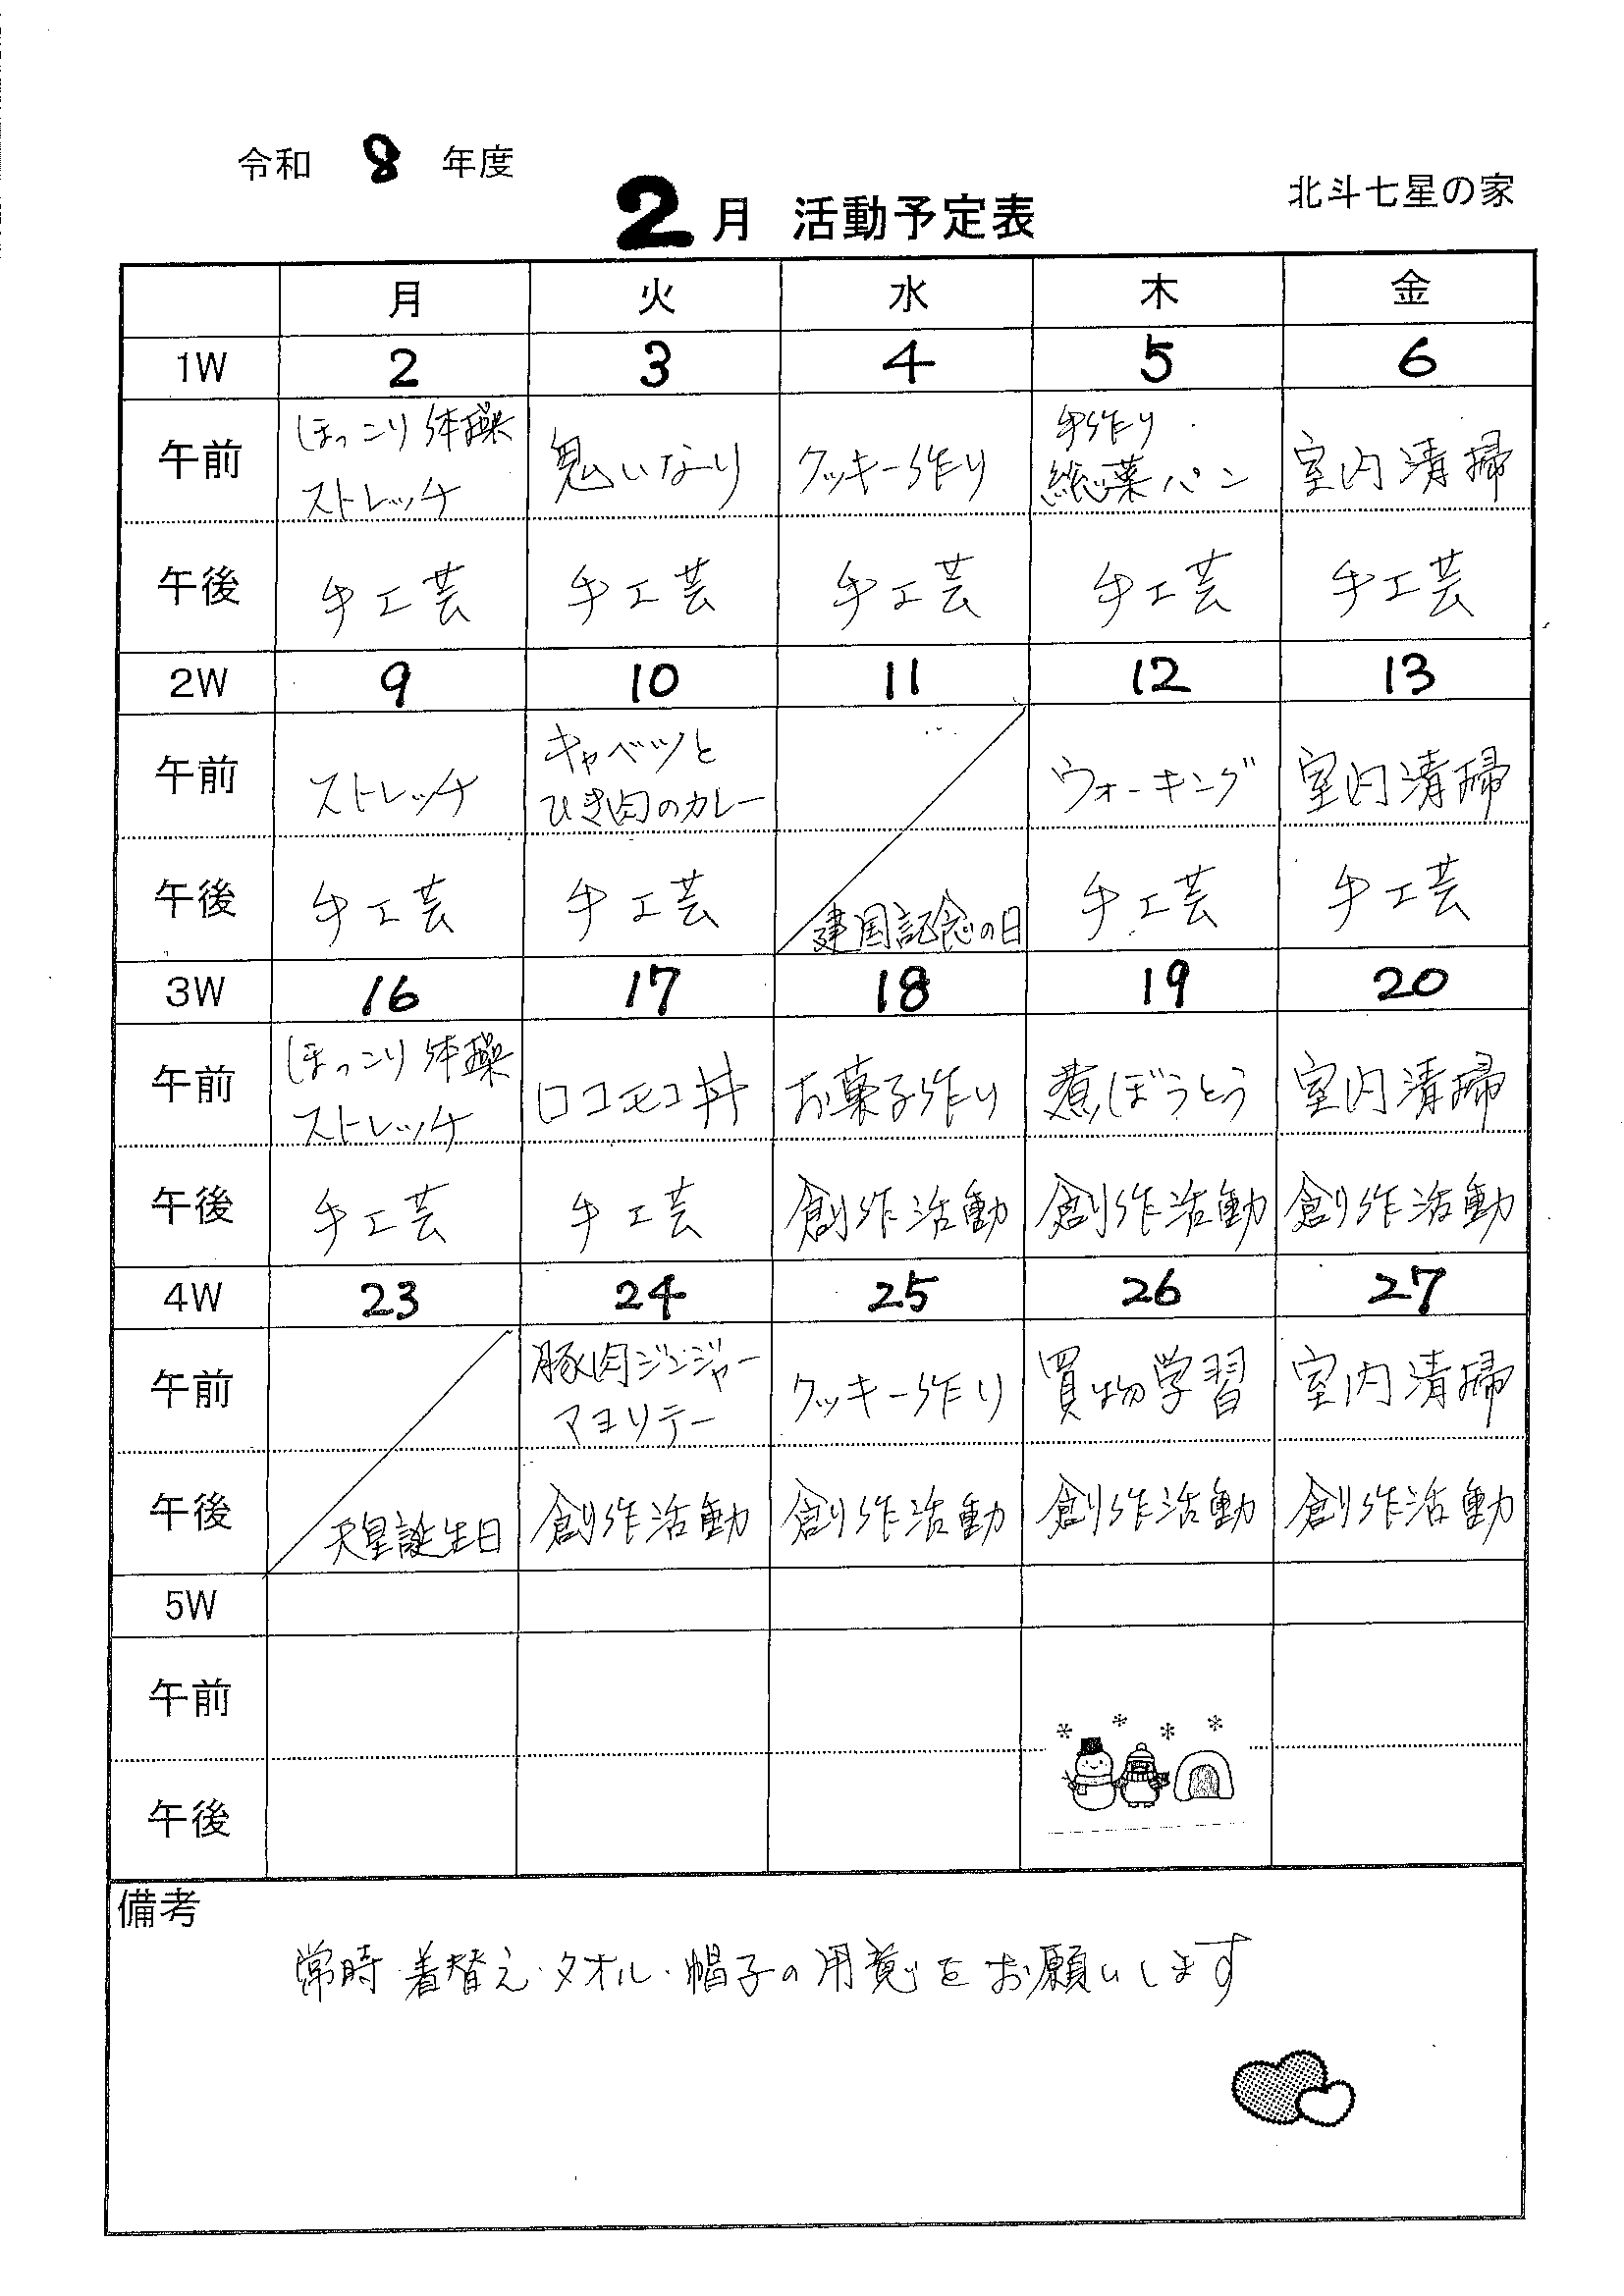 令和 8 年度
北斗七星の家
2月 活動予定表
月 火 水 木 金
1W 2 3 4 5 6
午前 ほっこり体操 ストレッチ 鬼いなり クッキー作り 手作り 総菜パン 室内清掃
午後 手工芸 手工芸 手工芸 手工芸 手工芸
2W 9 10 11 12 13
午前 ストレッチ キャベツと ひき肉のカレー ウォーキング 室内清掃
午後 手工芸 手工芸 建国記念の日 手工芸 手工芸
3W 16 17 18 19 20
午前 ほっこり体操 ストレッチ ロコモコ丼 お菓子作り 煮ぼうとう 室内清掃
午後 手工芸 手工芸 創作活動 創作活動 創作活動
4W 23 24 25 26 27
午前 豚肉ジンジャー マヨソテー クッキー作り 買物学習 室内清掃
午後 天皇誕生日 創作活動 創作活動 創作活動 創作活動
5W
午前
午後
備考
常時・着替え・タオル・帽子の用意をお願いします